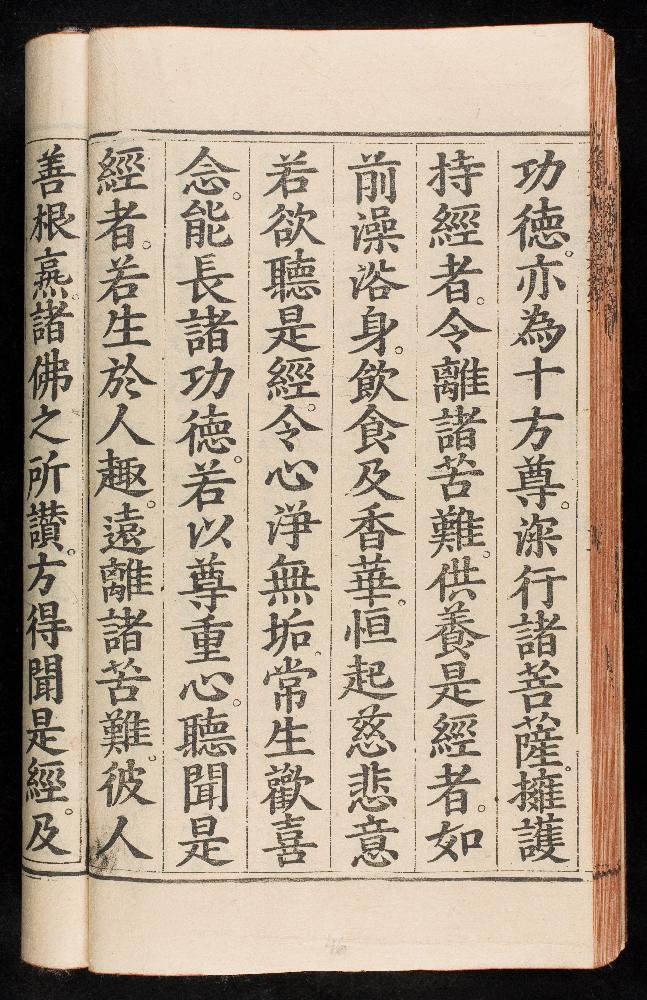 功德。亦為十方尊。深行諸菩薩。擁護
持經者。令離諸苦難。供養是經者。如
前澡浴身。飲食及香華。恒起慈悲意
若欲聽是經。令心淨無垢。常生歡喜
念。能長諸功德。若以尊重心。聽聞是
經者。若生於人趣。遠離諸苦難。彼人
善根熟。諸佛之所讚。方得聞是經。及